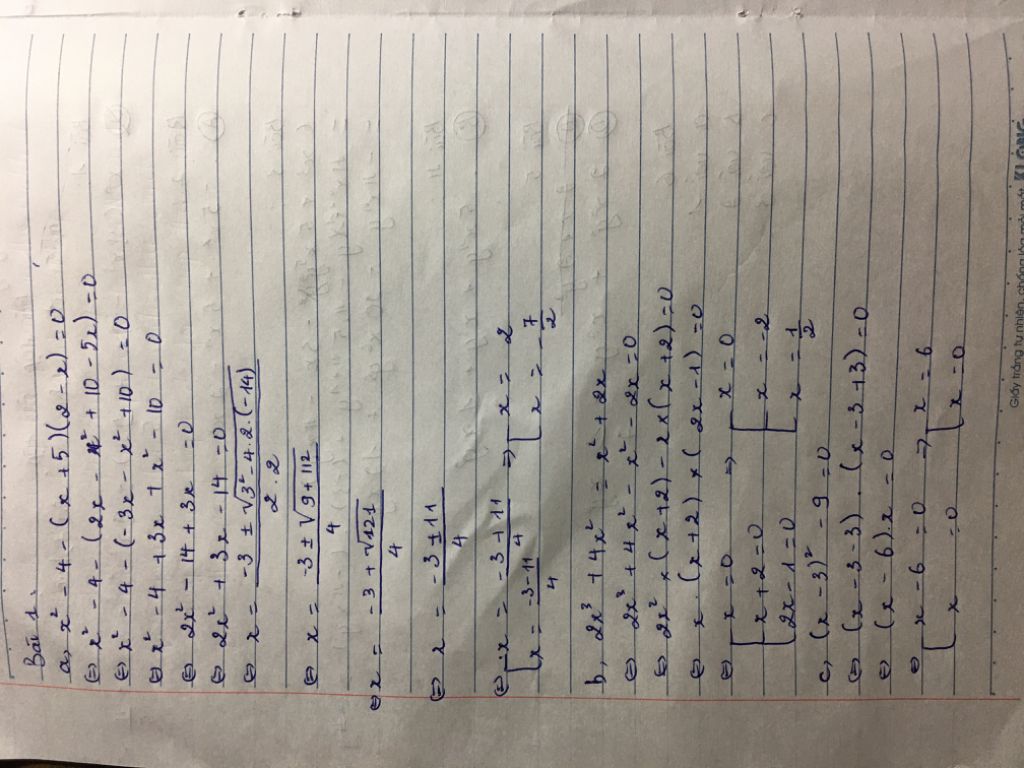 Bài 1.
a, x² - 4 - (x + 5)(2 - x) = 0
⇔ x² - 4 - (2x - x² + 10 - 5x) = 0
⇔ x² - 4 - (-3x - x² + 10) = 0
⇔ x² - 4 + 3x + x² - 10 = 0
⇔ 2x² - 14 + 3x = 0
⇔ 2x² + 3x - 14 = 0
⇔ x = (-3 ± √(3² - 4.2.(-14))) / (2.2)
⇔ x = (-3 ± √(9 + 112)) / 4
⇔ x = (-3 + √121) / 4
⇔ x = (-3 ± 11) / 4
⇔ [ x = (-3 + 11) / 4 ⇒ [ x = 2
[ x = (-3 - 11) / 4 [ x = -7/2
b, 2x³ + 4x² = x² + 2x
⇔ 2x³ + 4x² - x² - 2x = 0
⇔ 2x² × (x + 2) - x × (x + 2) = 0
⇔ x . (x + 2) × (2x - 1) = 0
⇔ [ x = 0 ⇒ [ x = 0
[ x + 2 = 0 [ x = -2
[ 2x - 1 = 0 [ x = 1/2
c, (x - 3)² - 9 = 0
⇔ (x - 3 - 3) . (x - 3 + 3) = 0
⇔ (x - 6) . x = 0
⇔ [ x - 6 = 0 ⇒ [ x = 6
[ x = 0 [ x = 0
Giấy trắng tự nhiên, chống lóa, mỏi mắt